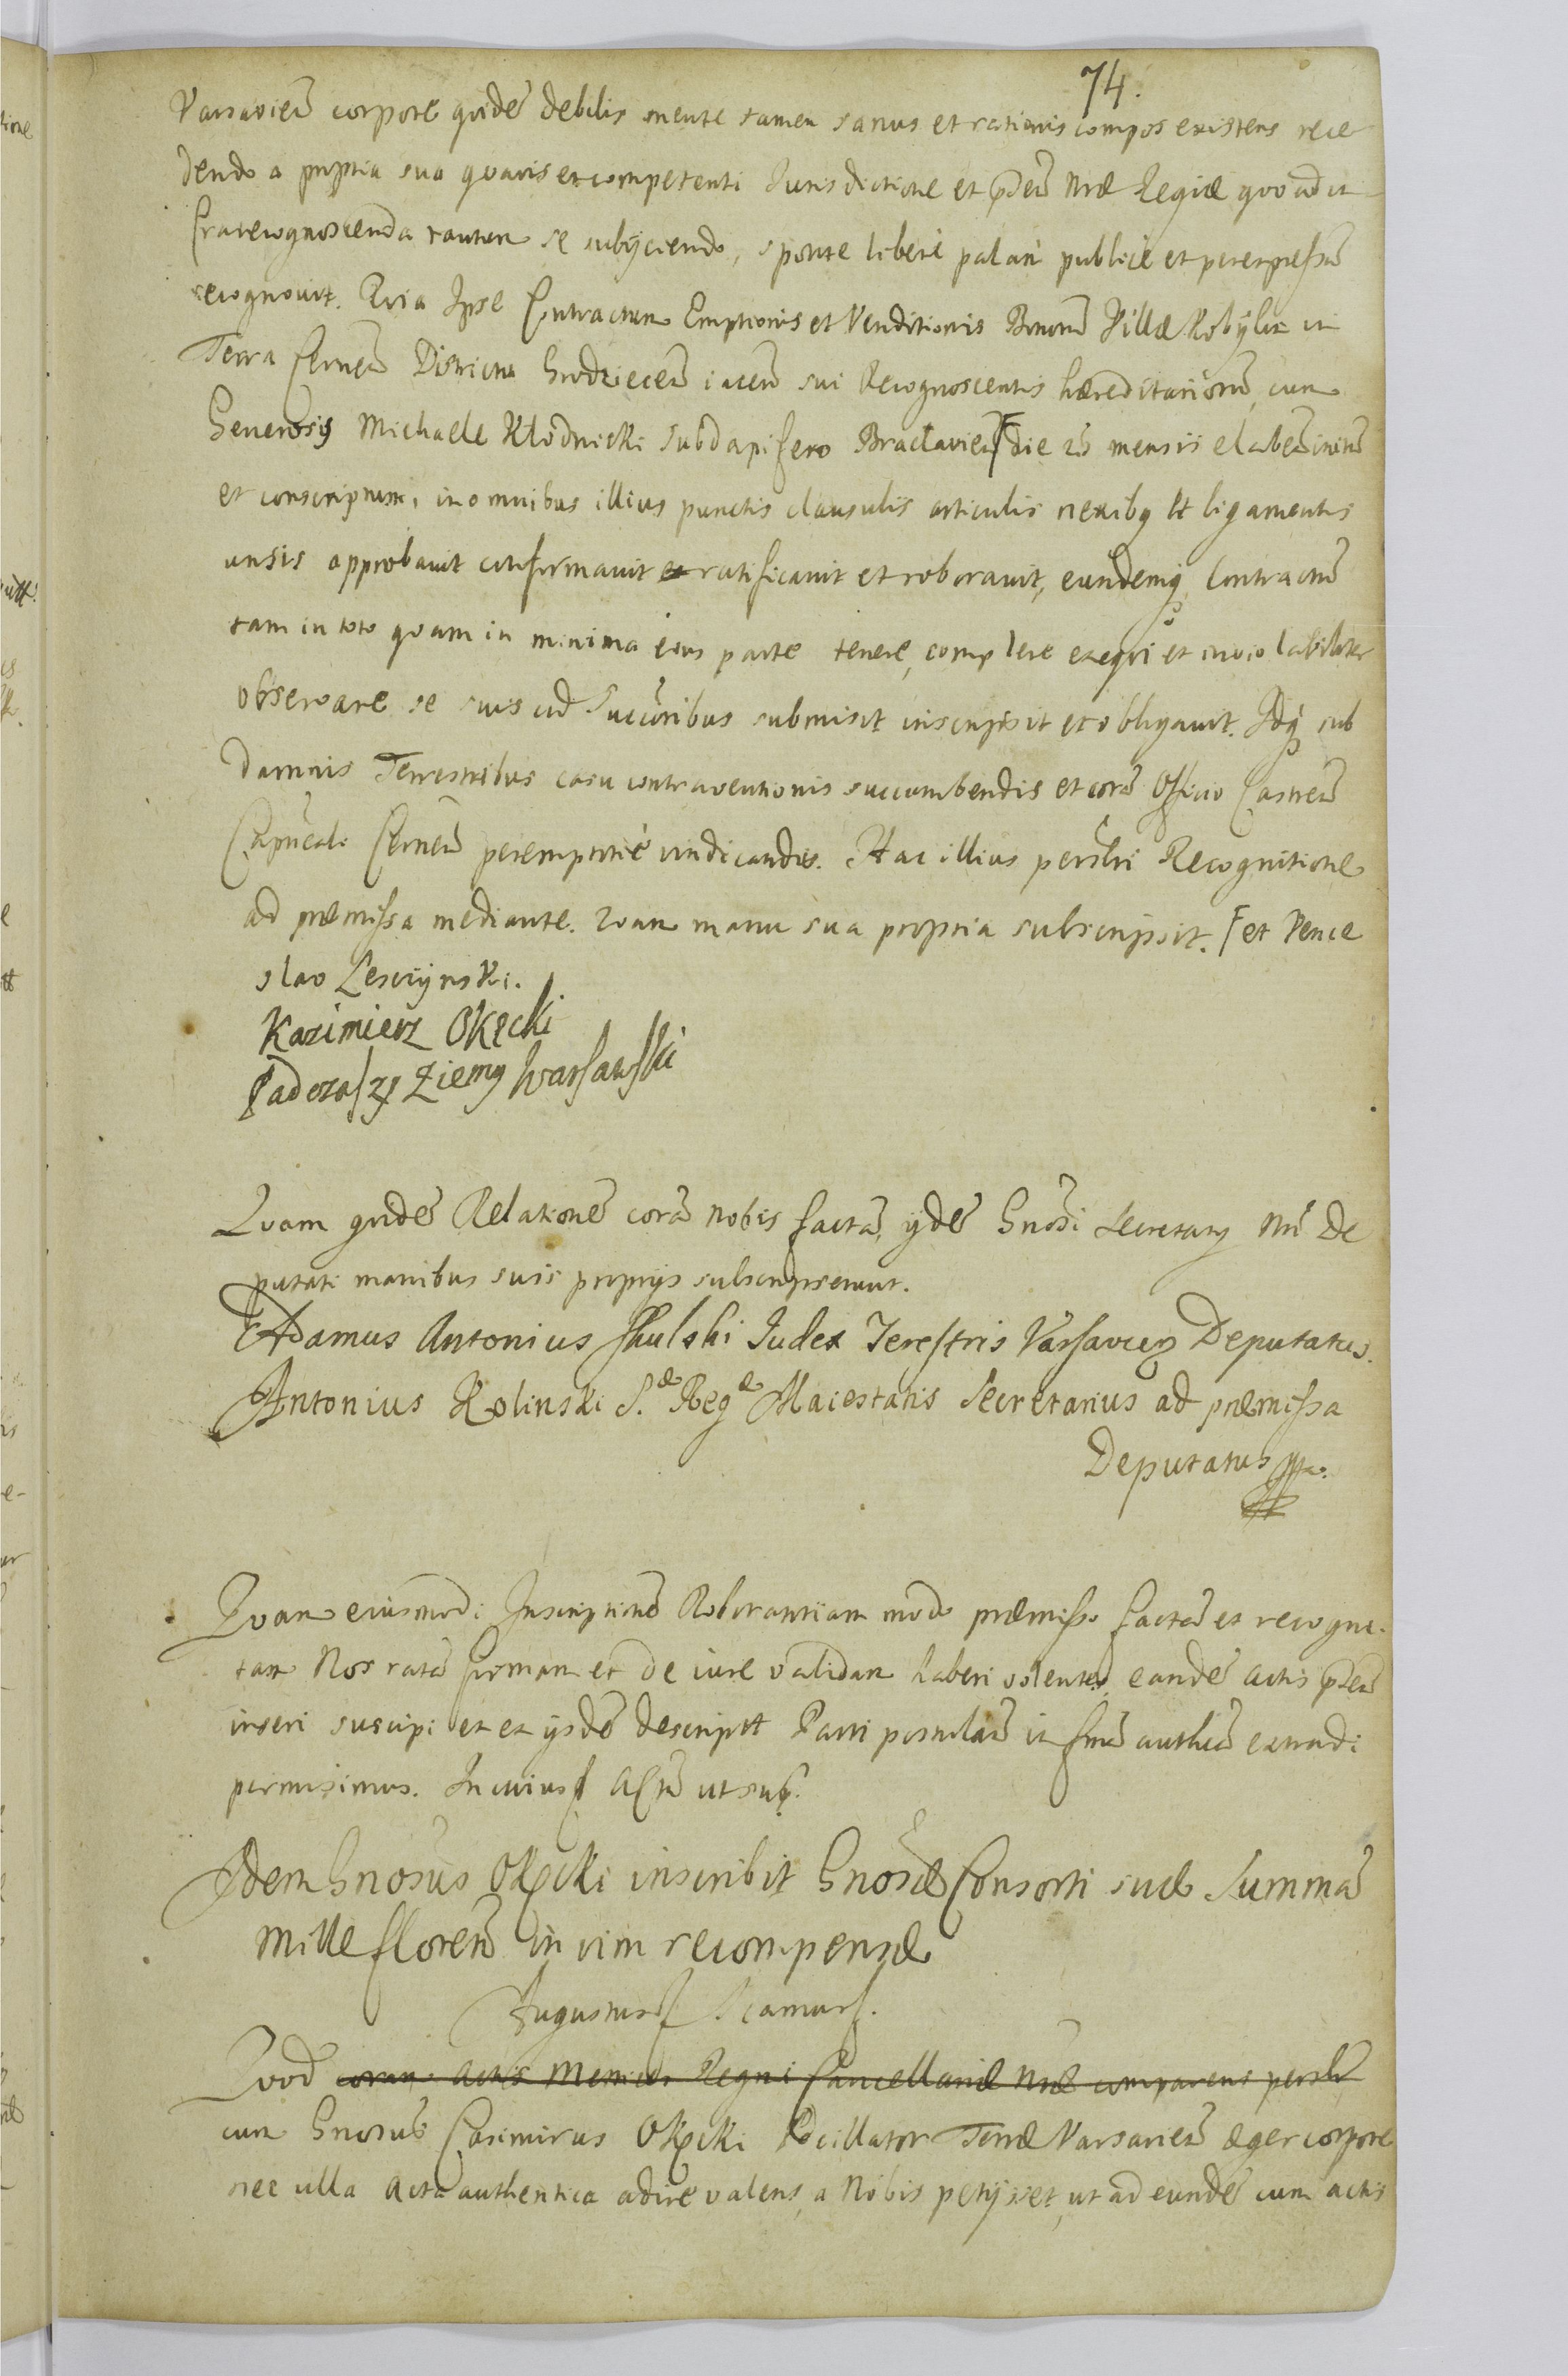 74.
Varsavień corpore quidē debilis mente tamen sanus et rationis compos existens rece
dendo a propria sua quavis et competenti Jurisdictione et pntm Nrae Regiae quoad in
fra recognoscenda tantum se subijciendo, sponte libere palam publice et per expressū
recognovit. Quia Ipse Contractum Emptionis et Venditionis Bonorū Villae Kobylin in
Terra Cernen Districtu Grodziecen iacen sui Recognoscentis haereditariorū cum
Generosis Michaele Kłodnicki Subdapifero Braclavien die mensis elaben initū
et conscriptum, in omnibus illius punctis clausulis articulis nexibq et ligamentis
unsis approbavit confirmavit et ratificavit et roboravit, eundemq Contractū
tam in toto quam in minima eius parte tenere, complere exequi et inviolabiliter
observare se suis cū Succūribus submisit inscripsit et obligavit. Idq sub
damnis Terrestribus casu contraventionis succumbendis et corā Officio Castren
Capneali Cernen peremptorie vindicandis. Hac illius persli Recognitione
ad praemissa mediante. Quam manu sua propria subscripsit. et Vence
slao Lesczynski.
Kazimierz Okęcki
Podczaszy Ziemy Warszawski
Quam quidē Relationē corā nobis factā, ijdē Gnosi Secretarij Nri De
putati manibus suis proprijs subscripserunt.
Adamus Antonius Skulski Judex Terestris Varsavien Deputatus.
Antonius Kolinski S. Rege Maiestatis Secretarius ad praemissa
Deputatus
Quam eiusmodi Inscriptionē Roborantiam modo praemisso factā et recogni-
tam Nos ratā firmam et de iure validam haberi volentes, eandē actis pntm
inseri suscipi et ex ijsdē descriptt Parti postulan in formā authen extradi
permisimus. In cuius Actū ut sup.
Idem Gnosus Okęcki inscribit Gnosae Consorti suae Summā
Mille florenō in vim recompensae
Augustus S.
Quod coram Actis Metrices Regni Cancellariae Nrae comparens persli
cum Gnosus Casimirus Okęcki Pocillator Terrae Varsavien aeger corpore
nec ulla Acta authentica adire valens, a Nobis petijsset, ut ad eundē cum actis